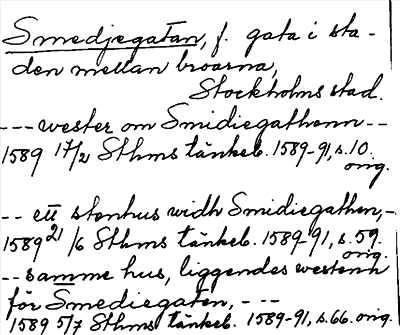 Smedjegatan, f. gata i sta-
den mellan broarna,
Stockholms stad.
--- wester om Smidiegathenn --
1589 17/2 Sthms tänkeb. 1589-91, s. 10.
orig.
-- ett stenhus widh Smidiegathen, -
1589 21/6 Sthms tänkeb. 1589-91, s. 59.
orig.
-- samme hus, liggendes westenn
för Smediegaten, ---
1589 5/7 Sthms tänkeb. 1589-91, s. 66. orig.